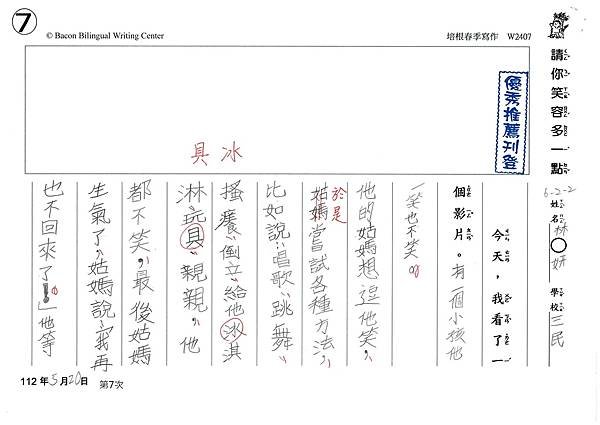 7
© Bacon Bilingual Writing Center
培根春季寫作 W2407
請你笑容多一點
優秀推薦刊登
6-2-2
姓名林〇妍 學校三民
今天，我看了一
個影片。有一個小孩他
一笑也不笑。
他的姑媽想逗他笑，
於是
姑媽嘗試各種方法，
比如說：唱歌、跳舞、
搔癢、倒立、給他冰淇
冰
淋、玩具、親親，他
具
都不笑，最後姑媽
生氣了，姑媽說：「我再
也不回來了！」他等
112年5月20日 第7次